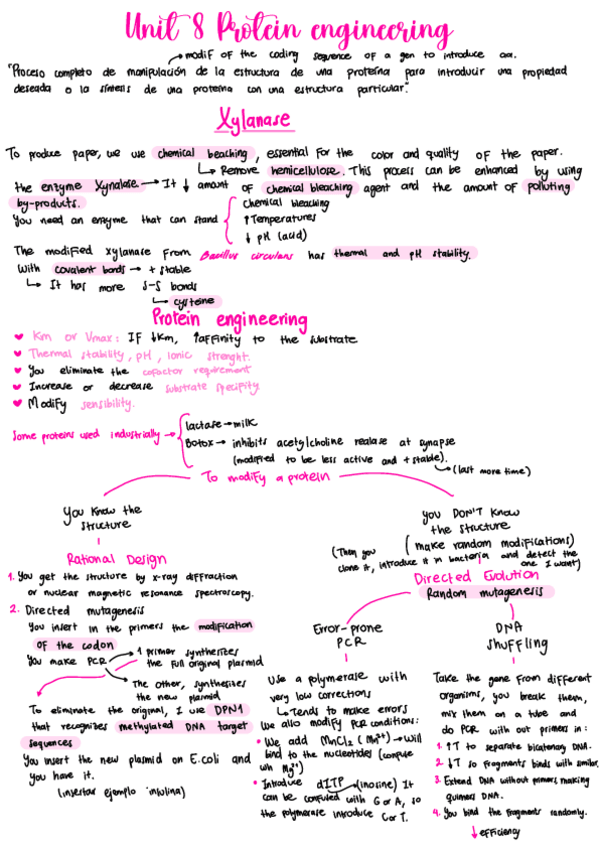 Unit 8 Protein engineering
modif of the coding sequence of a gen to introduce aa.
"Proceso completo de manipulación de la estructura de una proteína para introducir una propiedad
deseada o la síntesis de una proteína con una estructura particular."
Xylanase
To produce paper, we use chemical beaching, essential for the color and quality of the paper.
Remove hemicellulose. This process can be enhanced by using
the enzyme Xynalase → It ↓ amount of chemical bleaching agent and the amount of polluting
by-products.
You need an enzyme that can stand
chemical bleaching
↑ Temperatures
↓ pH (acid)
The modified xylanase from Bacillus circulans has thermal and pH stability.
With covalent bonds → + stable
It has more S-S bonds
cysteine
Protein engineering
Km or Vmax: If ↓Km, ↑affinity to the substrate
Thermal stability, pH, ionic strenght.
You eliminate the cofactor requirement
Increase or decrease substrate specifity
Modify sensibility.
Some proteins used industrially →
lactase → milk
Botox → inhibits acetylcholine realase at synapse
(modified to be less active and + stable).
(last more time)
To modify a protein
You Know the
structure
Rational Design
1. You get the structure by x-ray diffraction
or nuclear magnetic resonance spectroscopy.
2. Directed mutagenesis
You insert in the primers the modification
of the codon
You make PCR
1 primer synthesizes
the full original plasmid
The other, synthesizes
the new plasmid
To eliminate the original, I use DPN1
that recognizes methylated DNA target
sequences
You insert the new plasmid on E.coli and
you have it.
(insertar ejemplo insulina)
you DON'T Know
the structure
(make random modifications)
(Then you
clone it, introduce it in bacteria and detect the
one I want)
Directed Evolution
Random mutagenesis
Error-prone
PCR
Use a polymerase with
very low corrections
Tends to make errors
We also modify PCR conditions:
We add MnCl2 (Mn²⁺) → Will
bind to the nucleotides (confuse
wh Mg²⁺)
Introduce dITP → (inosine) It
can be confused with G or A, so
the polymerase introduce C or T.
DNA
shuffling
Take the gene from different
organisms, you break them,
mix them on a tube and
do PCR with out primers in:
1. ↑T to separate bicatenary DNA.
2. ↓T so fragments binds with similar
3. Extend DNA without primers, making
quimers DNA.
4. You bind the fragments randomly.
↓ efficiency